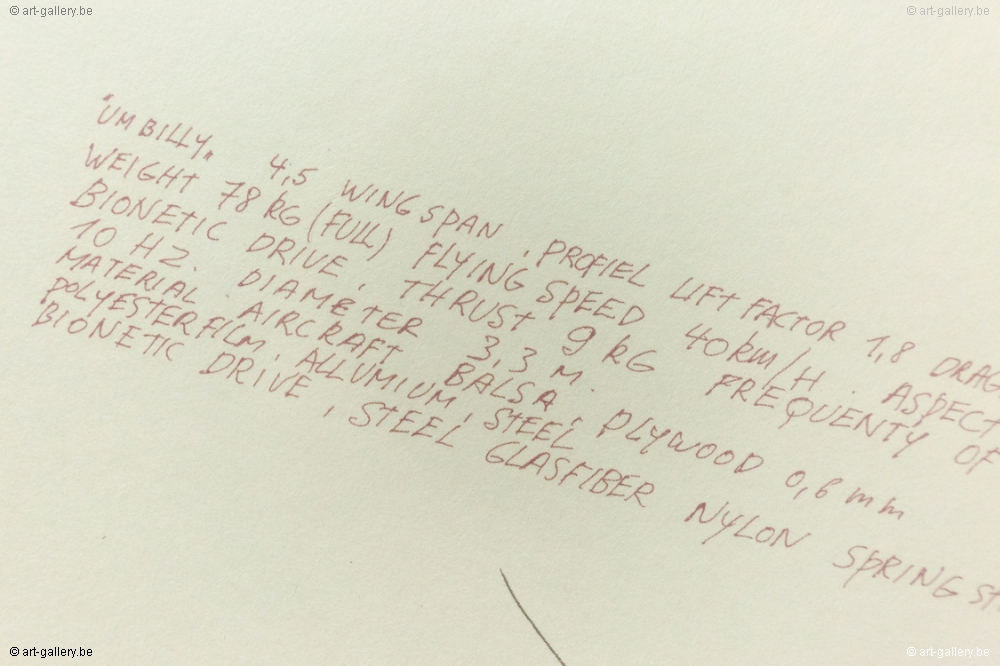 © art-gallery.be © art-gallery.be
"UMBILLY„ 4,5 WINGSPAN, PROFIEL LIFT FACTOR 1,8 DRAG
WEIGHT 78 KG (FULL) FLYING SPEED 40 km/H. ASPECT
BIONETIC DRIVE, THRUST 9 KG FREQUENTY OF
10 HZ. DIAMETER 3,3 M.
MATERIAL AIRCRAFT BALSA, PLYWOOD 0,6 mm
POLYESTERFILM, ALLUMIUM, STEEL
"BIONETIC DRIVE, STEEL GLASFIBER NYLON SPRING
© art-gallery.be © art-gallery.be